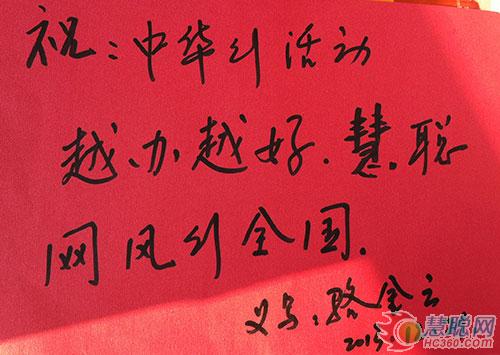 祝:中华行活动
越办越好.慧聪
网风行全国.
义乌:骆金云
2015
慧聪网
HC360.com